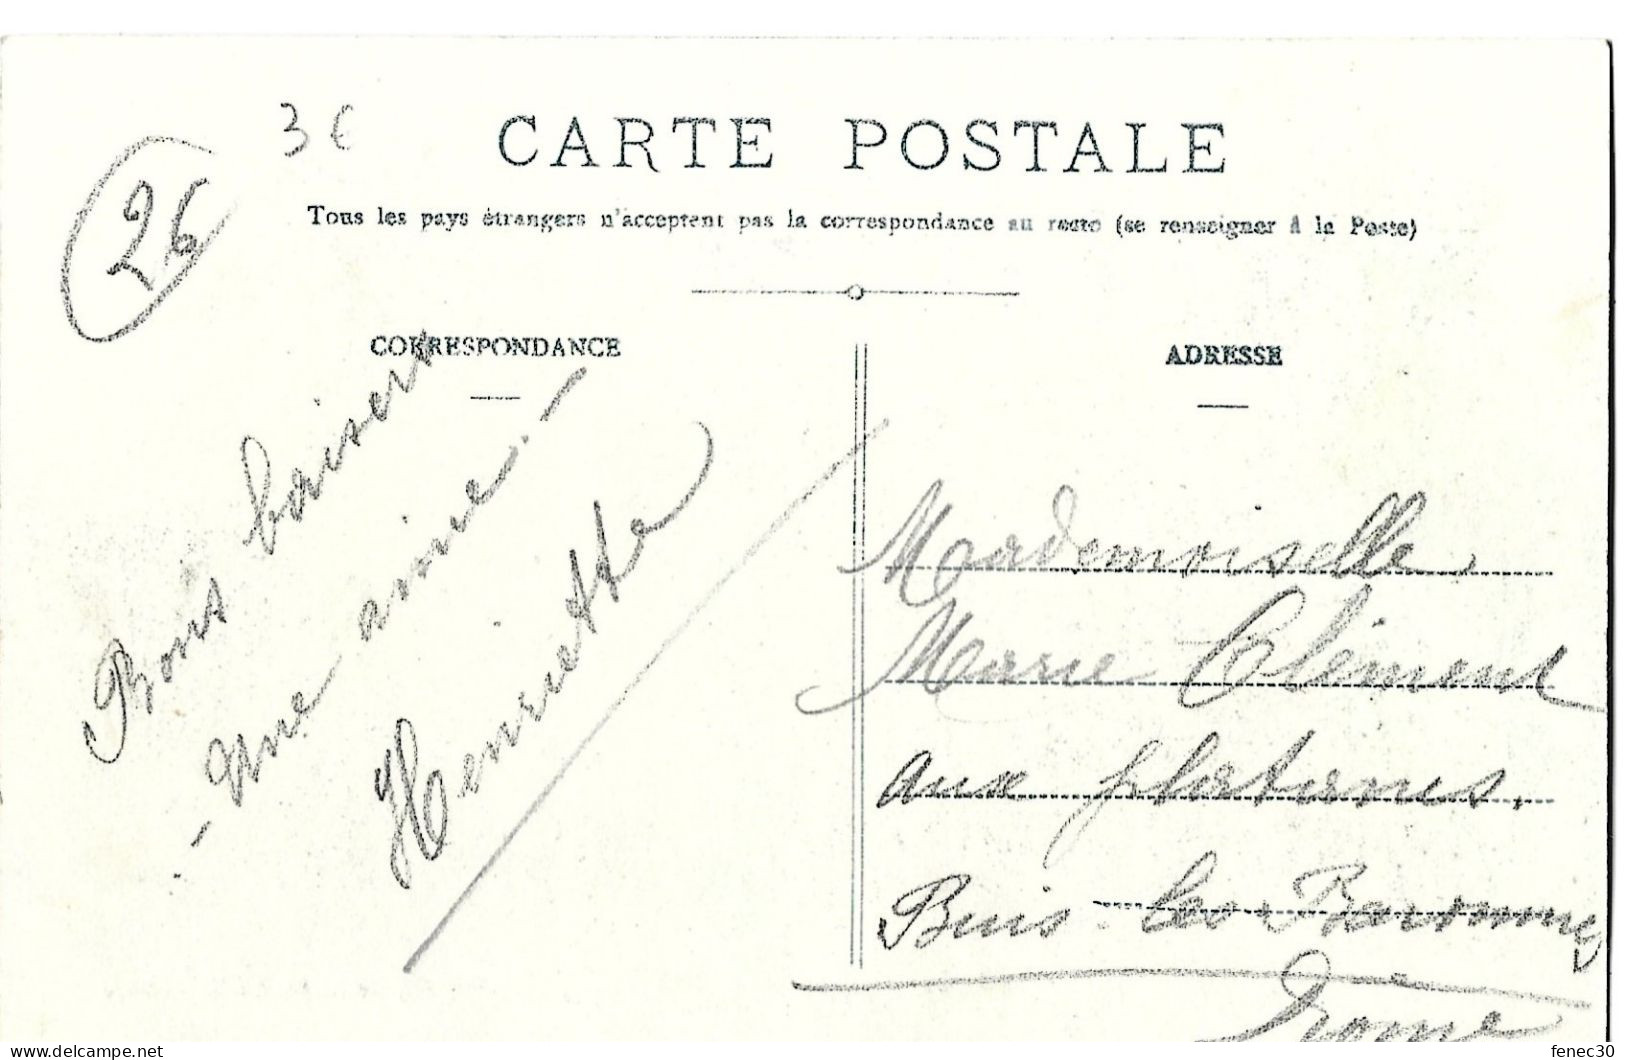 3 €
26
CARTE POSTALE
Tous les pays étrangers n'acceptent pas la correspondance au recto (se renseigner à la Poste)
CORRESPONDANCE
ADRESSE
Bons baisers
- Une amie. -
Henriette
Mademoiselle
Marie Clément
aux platanes.
Buis-les-Baronnies
Drôme
delcampe.net
fenec30